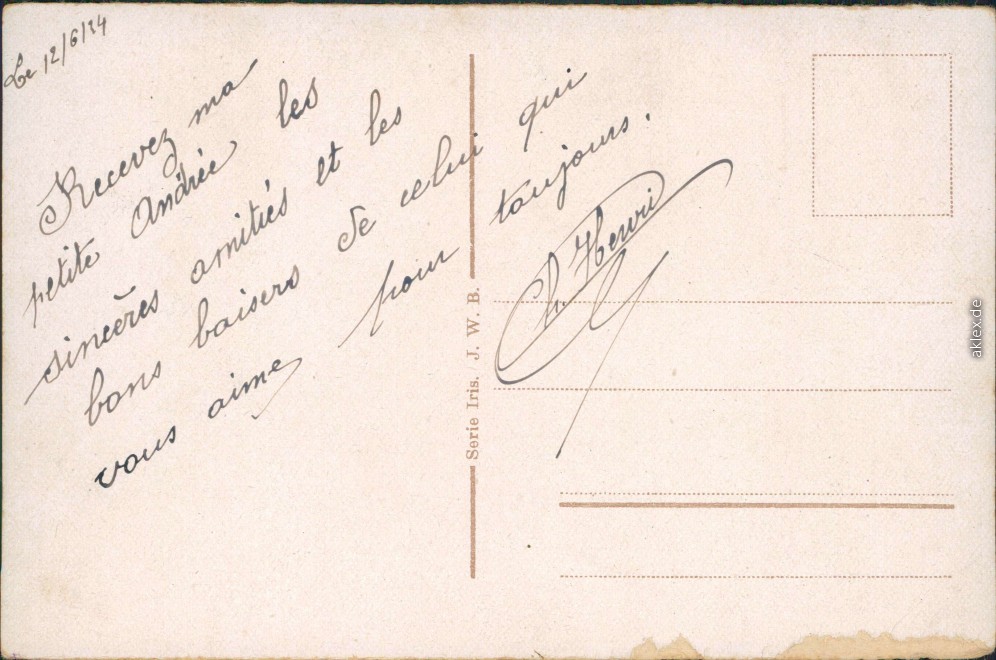 Le 12/6/24
Recevez ma
petite Andrée les
sincères amitiés et les
bons baisers de celui qui
vous aime pour toujours.
Henri
Serie Iris. J. W. B.
aklex.de